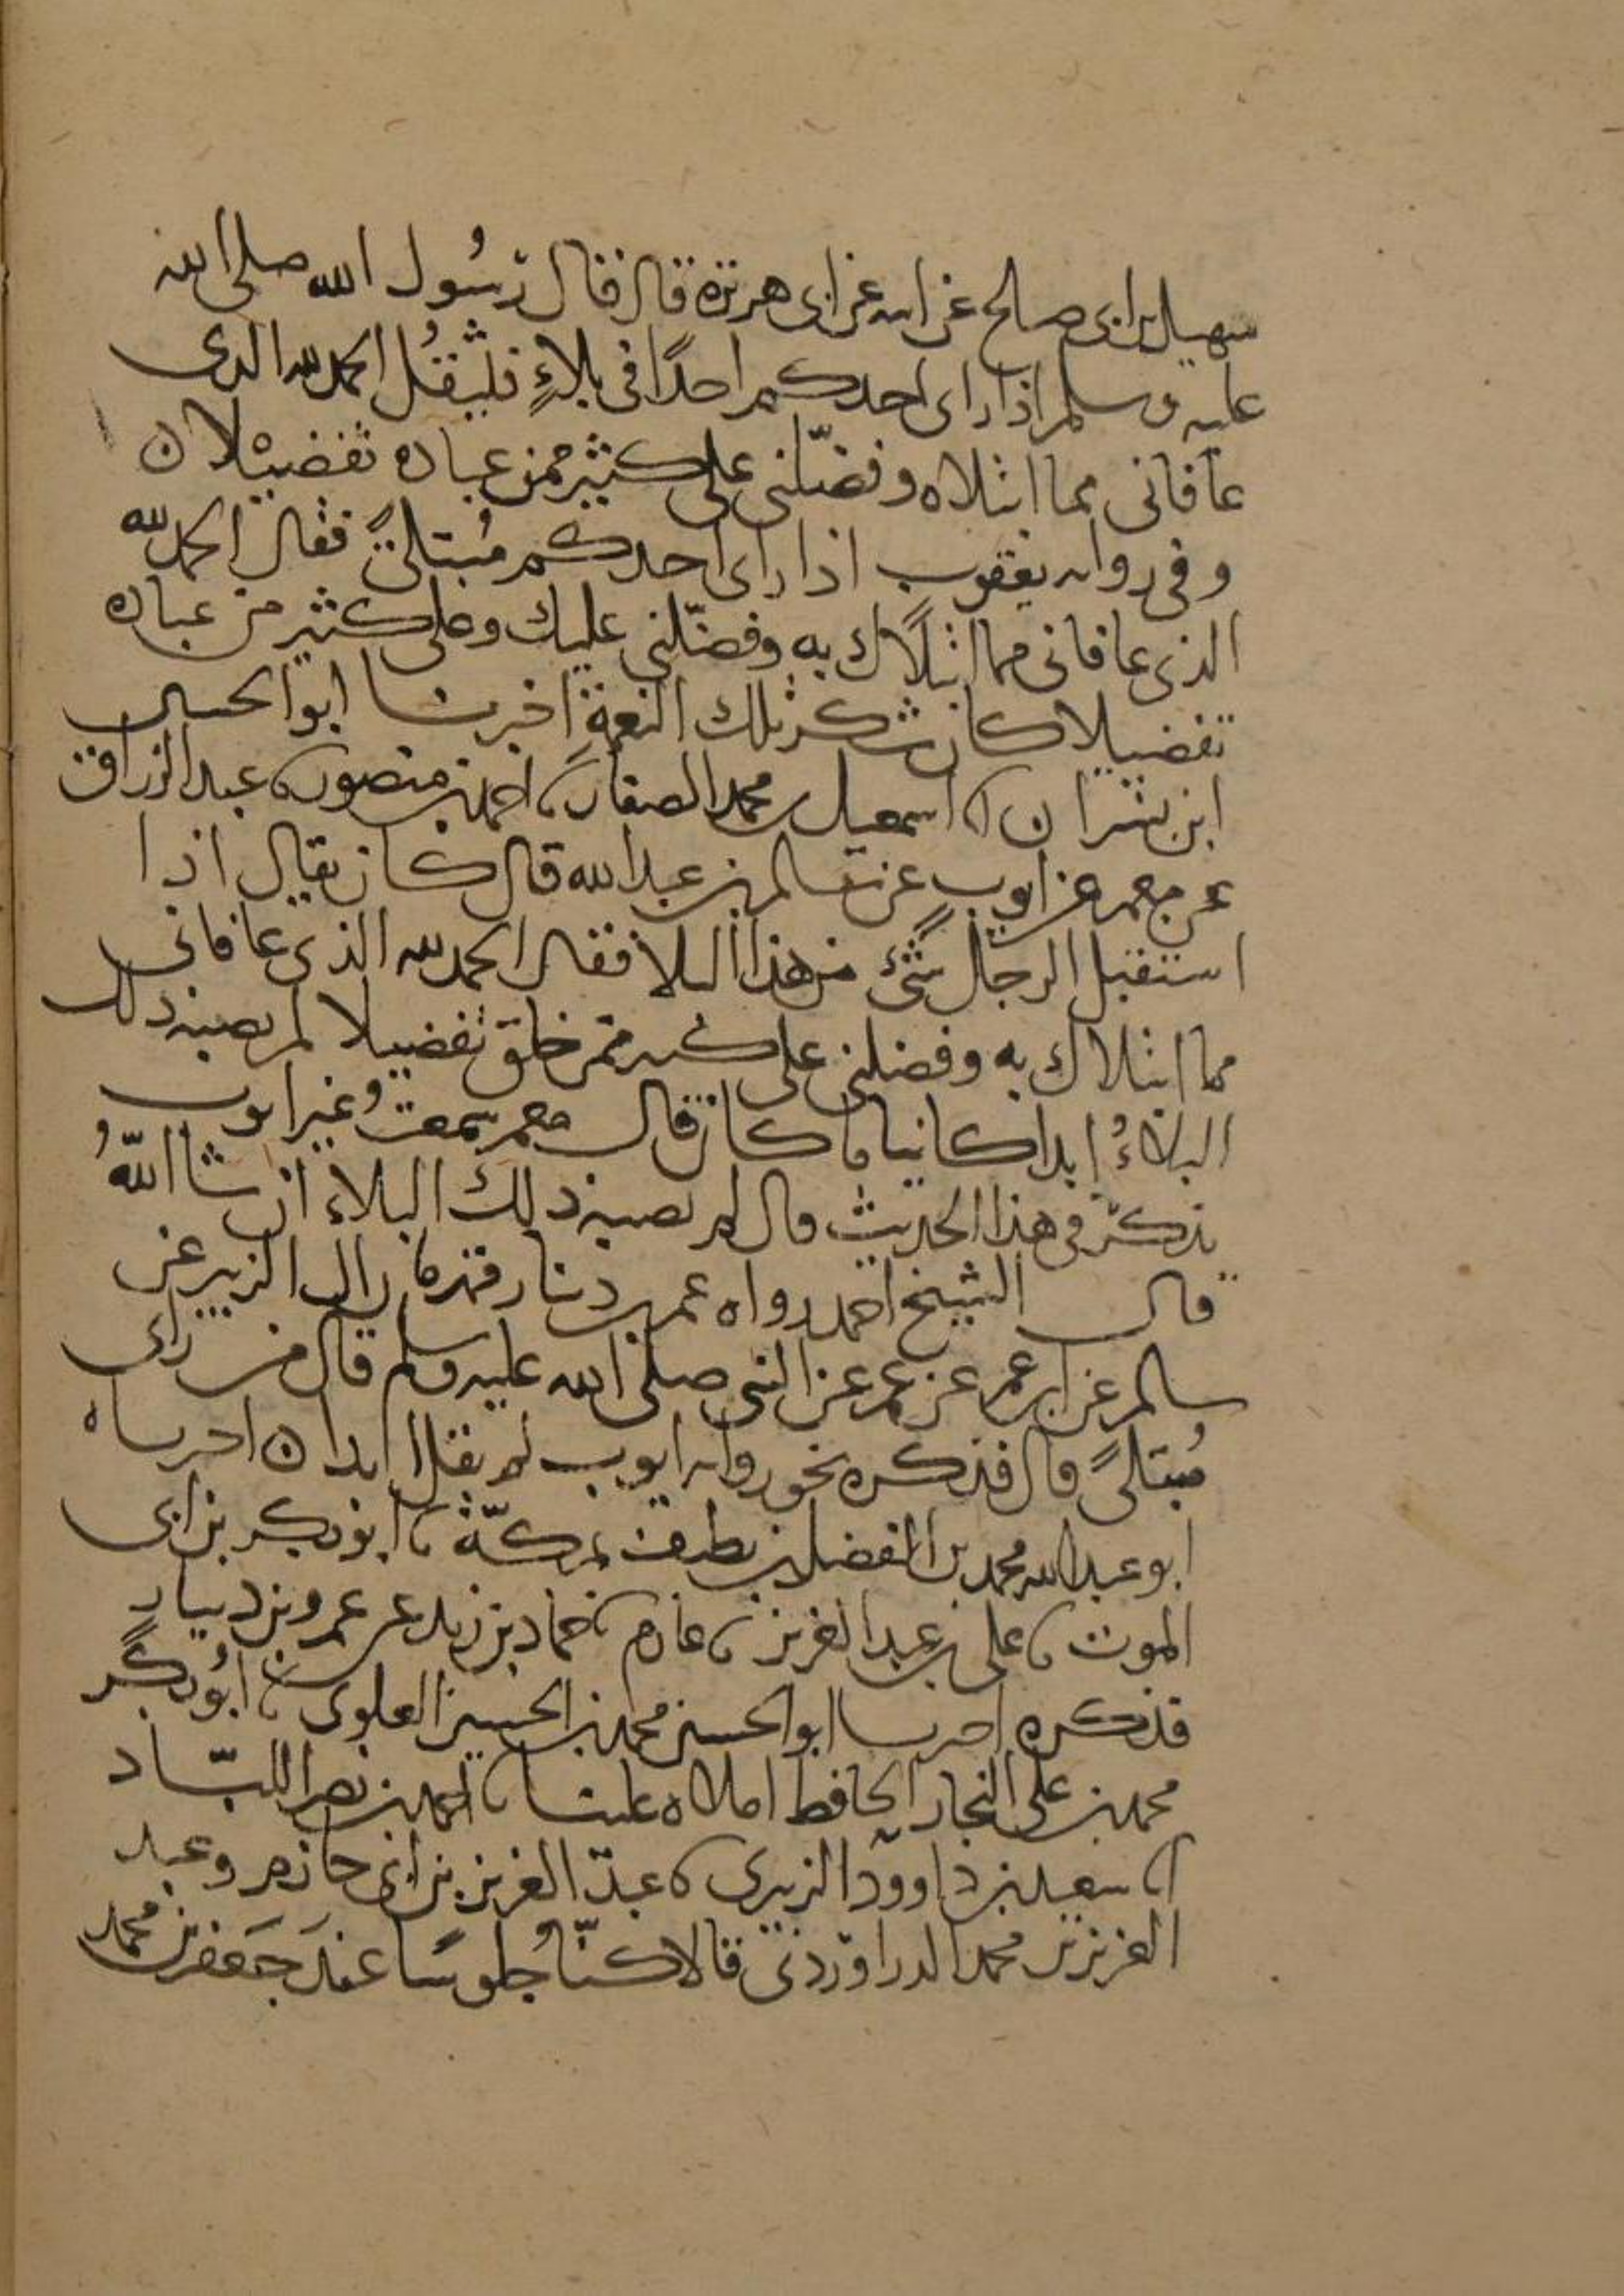 سهيل بن ابى صالح عن ابيه عن ابى هريرة قال قال رسُول الله صلى الله
عليه وسلم اذا راى احدكم احدًا فى بلاءٍ فليقُل الحمد لله الذى
عافانى مما ابتلاه وفضّلنى على كثير ممن عباده تفضيْلا ن
وفى روايه يعقوب اذا راى احدكم مُبتلىً فقال الحمد لله
الذى عافانى مما ابتلاك به وفضّلنى عليك وعلى كثير من عباده
تفضيلا كان شكر تلك النعمةِ اخبرنا ابو الحسين
ابن بشران ا اسمعيل بن محمد الصفار نا احمد بن منصور نا عبد الرزاق
عن معمر عن ايوب عن سالم بن عبد الله قال كان يقال اذا
استقبل الرجل شىء من هذا البلا فقال الحمد لله الذى عافانى
مما ابتلاك به وفضلنى على كثير ممن خلق تفضيلا لم يصبه ذلك
البلاءُ ابدا كاينا ما كان قال معمر سمعتُ غير ايوب
يذكر فى هذا الحديث قال لم يصبه ذلك البلاء ان شا اللهُ
قال الشيخ احمد رواه عمرو بن دينار قهرمان ال الزبير عن
سالم عن ابن عمر عن عمر عن النبى صلى الله عليه وسلم قال من راى
مُبتلىً قال فذكره نحو روايه ايوب لم يقل ابدا ن اخبرناه
ابو عبد الله محمد بن الفضل بن نظيف بمكّة نا ابو بكر بن ابى
الموت نا على بن عبد العزيز نا عارم نا حماد بن زيد عن عمرو بن دينار
فذكره اخبرنا ابو الحسن محمد بن الحسين العلوى نا ابُو بكرٍ
محمد بن على النجار الحافظ املاه علينا نا احمد بن نصر اللبّاد
نا سعيد بن داوود الزبيرى نا عبد العزيز بن ابى حازم وعبد
العزيز بن محمد الدراوردى قالا كنّا جُلوسًا عندَ جَعفر بن محمد